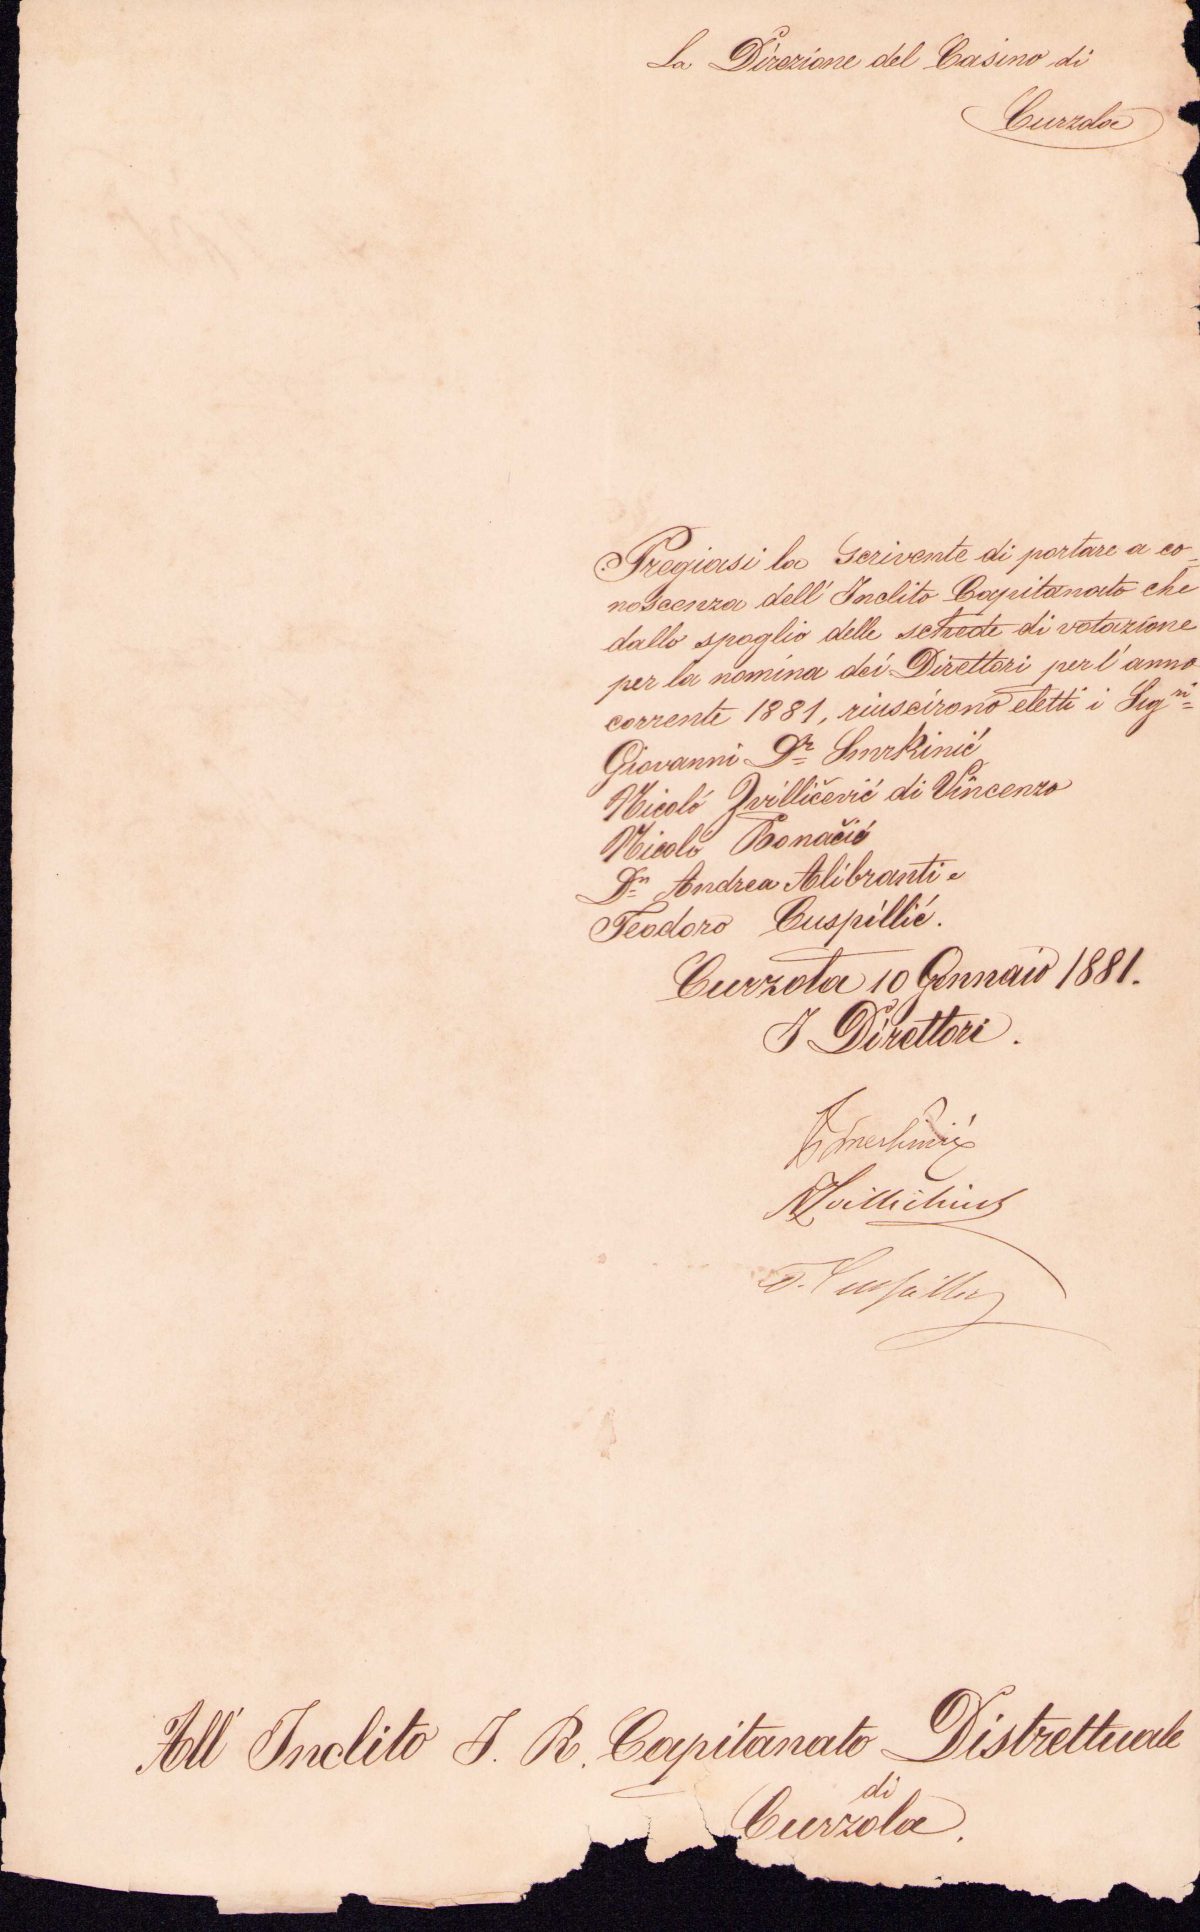 La Direzione del Casino di
Curzola
Pregiasi la scrivente di portare a co=
noscenza dell' Inclito Capitanato che
dallo spoglio delle schede di votazione
per la nomina dei Direttori per l' anno
corrente 1881, riuscirono eletti i Sigri
Giovanni Dr Smrkinić
Nicoló Zvillićević di Vincenzo
Nicoló Bonačić
Dn Andrea Alibranti e
Teodoro Cuspillić.
Curzola 10 Gennaio 1881.
I Direttori.
T. Cuspillich
All' Inclito I. R. Capitanato Distrettuale
di
Curzola.